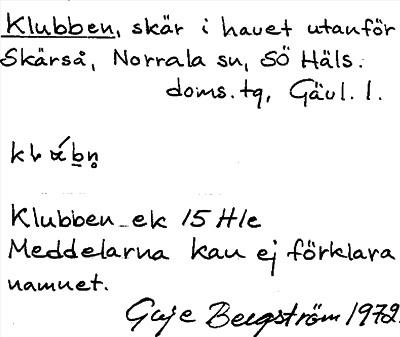 Klubben, skär i havet utanför
Skärså, Norrala sn, SÖ Häls.
doms.tg, Gävl. l.
Klubben ek 15 Hle
Meddelarna kan ej förklara
namnet.
Bergström 1972.